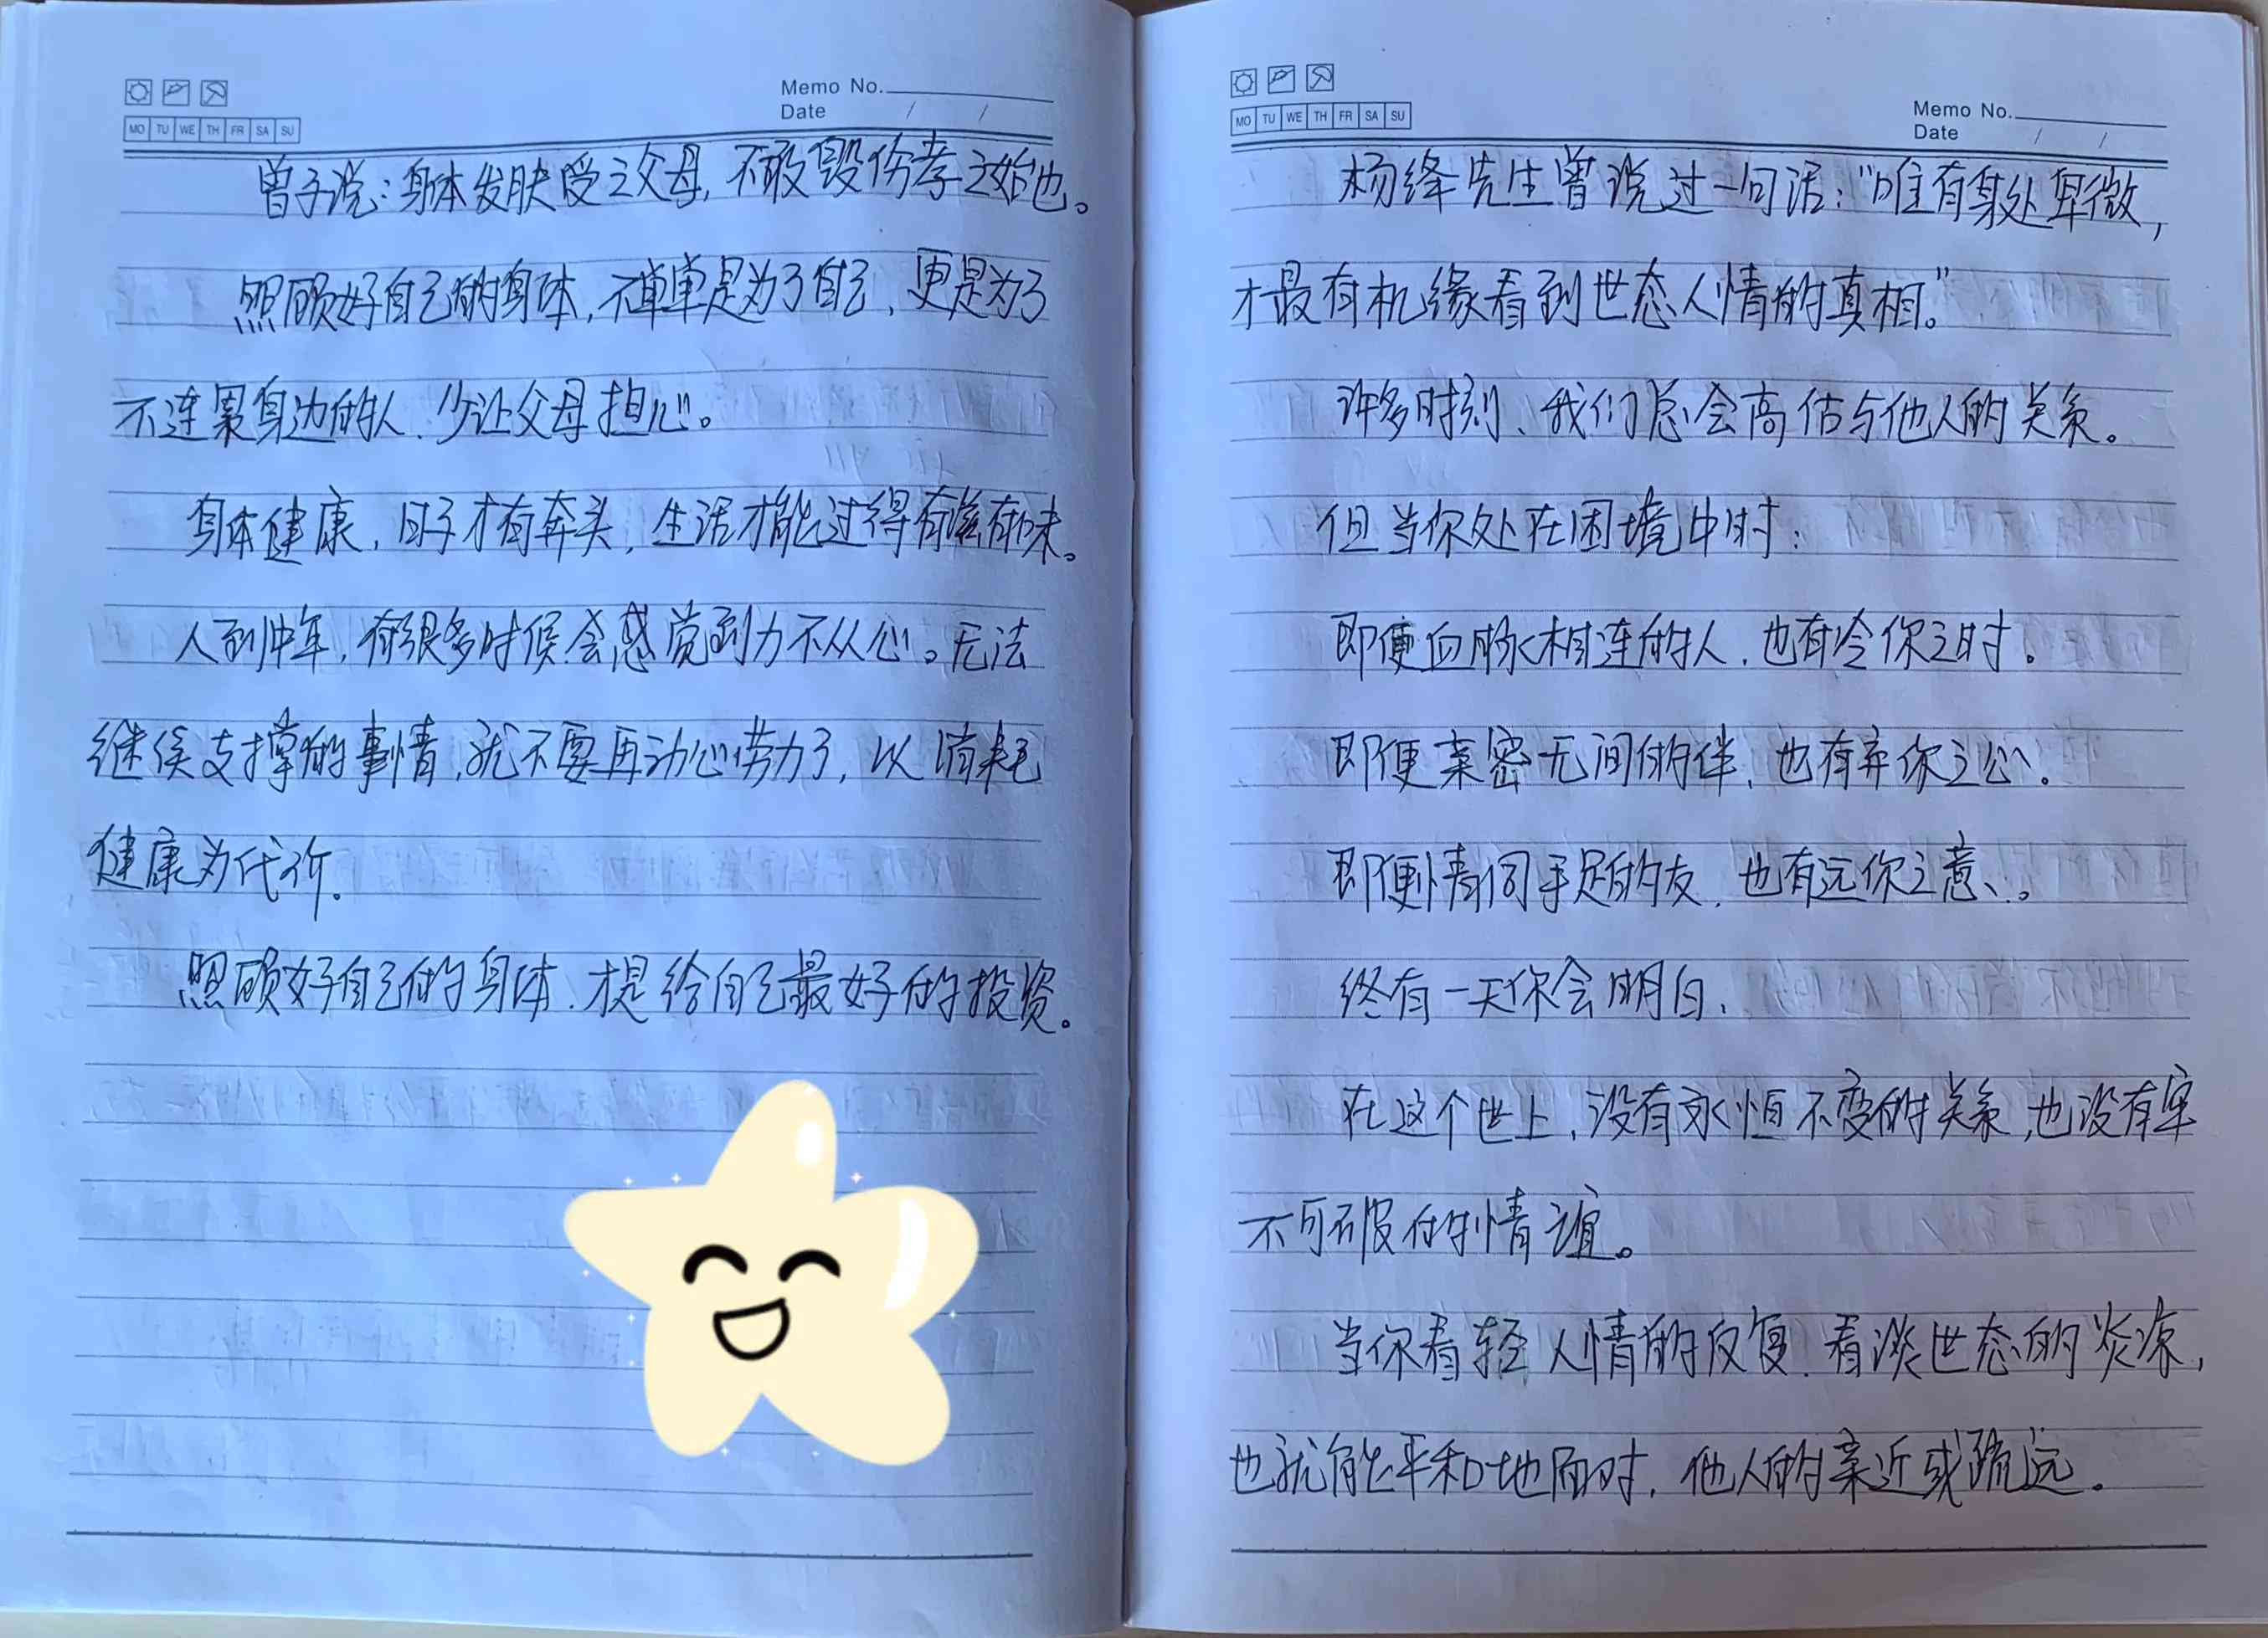 Memo No.
Date / /
MO TU WE TH FR SA SU
曾子说:身体发肤受之父母,不敢毁伤孝之始也。
照顾好自己的身体,不单单是为了自己,更是为了
不连累身边的人、少让父母担心。
身体健康,日子才有奔头,生活才能过得有滋有味。
人到中年,有很多时候会感觉到力不从心。无法
继续支撑的事情,就不要再动心劳力了,以消耗
健康为代价.
照顾好自己的身体.才是给自己最好的投资。
Memo No.
Date / /
MO TU WE TH FR SA SU
杨绛先生曾说过一句话:“唯有身处卑微,
才最有机缘看到世态人情的真相。”
许多时刻、我们总会高估与他人的关系。
但当你处在困境中时:
即便血脉相连的人.也有冷你之时。
即便亲密无间的伴、也有弃你之心。
即便情同手足的友.也有远你之意。
终有一天你会明白、
在这个世上,没有永恒不变的关系,也没有牢
不可破的情谊。
当你看轻人情的反复.看淡世态的炎凉,
也就能平和地面对.他人的亲近或疏远。